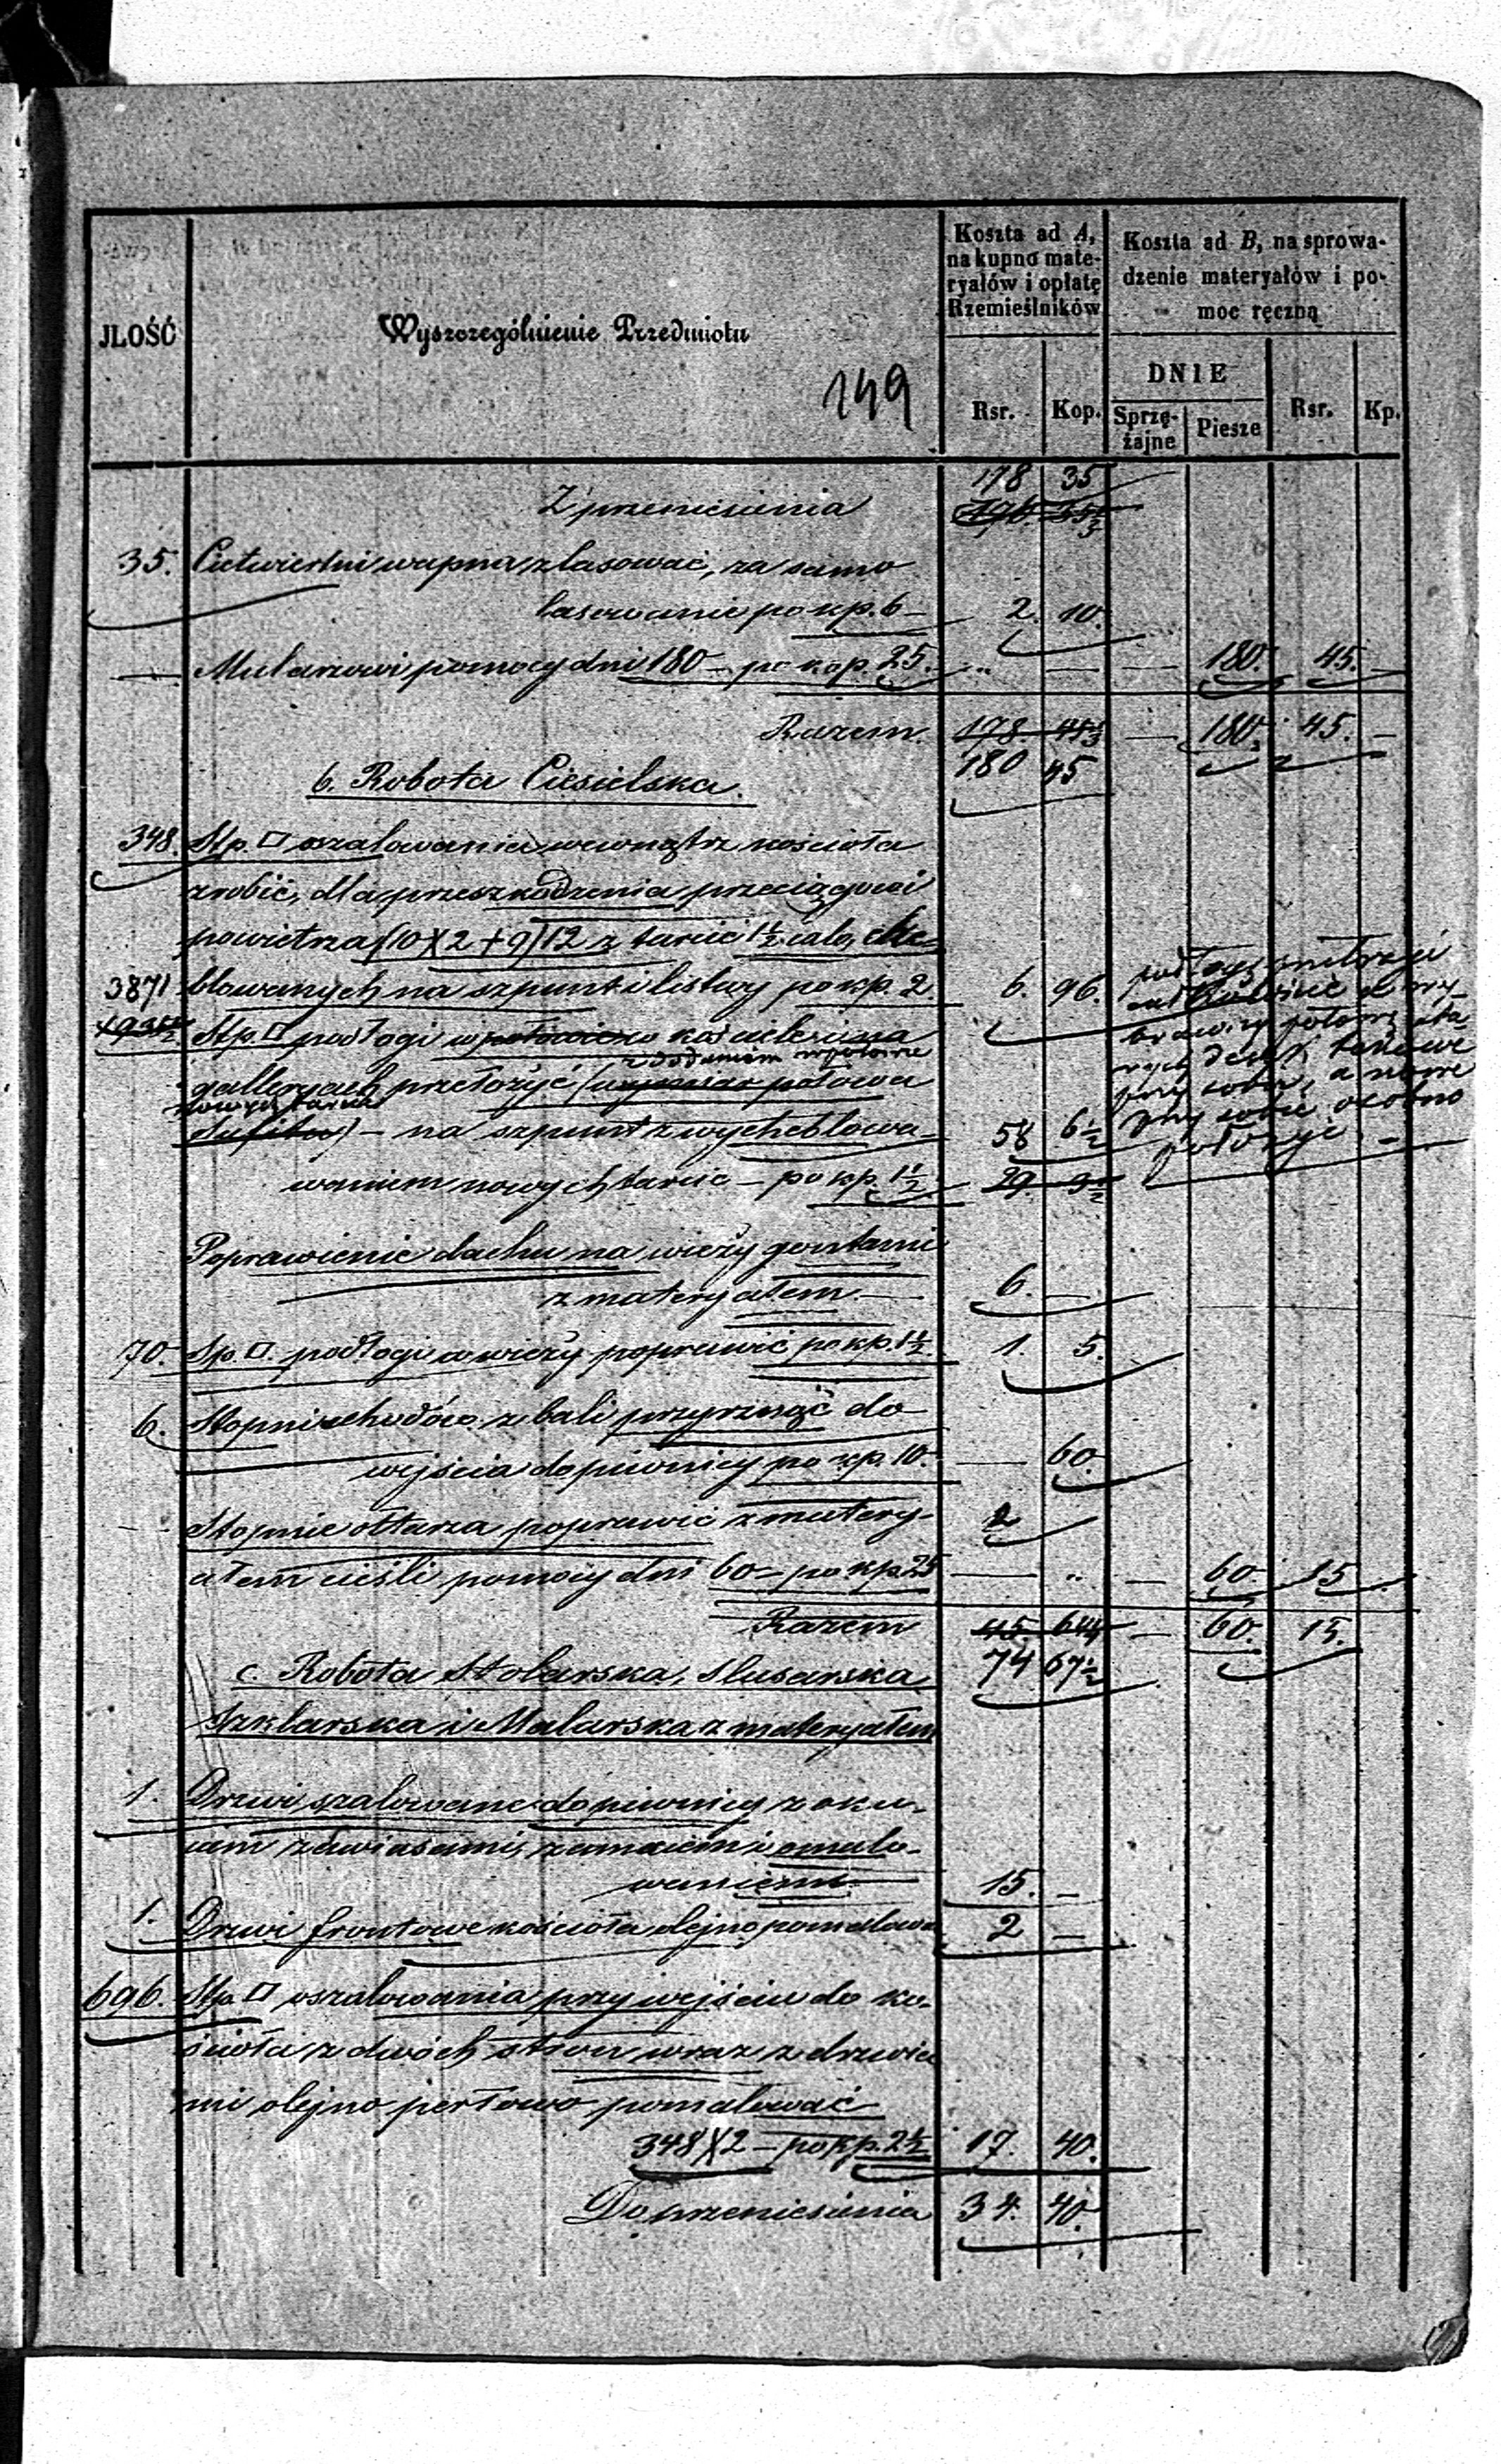 JLOŚĆ
Wyszczególnienie Przedmiotu
149
Koszta ad A,
na kupno mate-
ryałów i opłatę
Rzemieślników
Koszta ad B, na sprowa-
dzenie materyałów i po-
moc ręczną
DNIE
Rsr. Kop. Sprzę-
żajne Piesze Rsr. Kp.
Z przeniesienia 178 35
35. Ćwiertni wapna zlasować, za samo
lasowanie po kp. 6 — 2. 10.
— Mularzowi pomocy dni 180 — po kop. 25. — — 180. 45. —
Razem 178 — 180. 45. —
180 45
b. Robota Ciesielska.
348. Stp. □ oszalowania wewnątrz kościoła
zrobić, dla przeszkodzenia przeciągowi
powietrza (10 X 2 + 9) 12 z tarcic 1½ calo. cheb-
blowanych na szpunt i listwy po kp. 2 6. 96.
3871
1935½ Stp. □ podłogi w kościele i na
z dodaniem w połowie
galleryach przełożyć (wymiar połowa
nowych tarcic
sufitu) — na szpunt z wycheblowa- 58 6½
waniem nowych tarcic — po kp. 1½ 29. 3½
połowy
starych desek
przy sobie, a nowe
przy sobie osobno
położyć —
Poprawienie dachu na wieży gontami
z materyałem — 6. —
70. Sp. □. podłogi w wieży poprawić po kp. 1½ 1. 5.
6. Stopni schodów z bali przyrznąć do
wejścia do piwnicy po kp. 10. — 60.
— Stopnie ołtarza poprawić z matery- 2
ałem cieśli pomocy dni 60 — po kp 25 — — 60 15
Razem 45 64½ — 60. 15.
74 67½
c. Robota Stolarska, Slusarska
Szklarska i Malarska z materyałem
1. Drzwi szalowane do piwnicy z oku-
ciem zawiasami, zamkiem i omalo-
waniem 15. —
1. Drzwi frontowe kościoła olejno pomalowa 2 —
696. Stp. □ oszalowania przy wejściu do ko-
ścioła z dwóch stron wraz z drzwia
mi olejno perłowo pomalować
348 X 2 — po kp. 2½ 17. 40.
Do przeniesienia 34. 40.